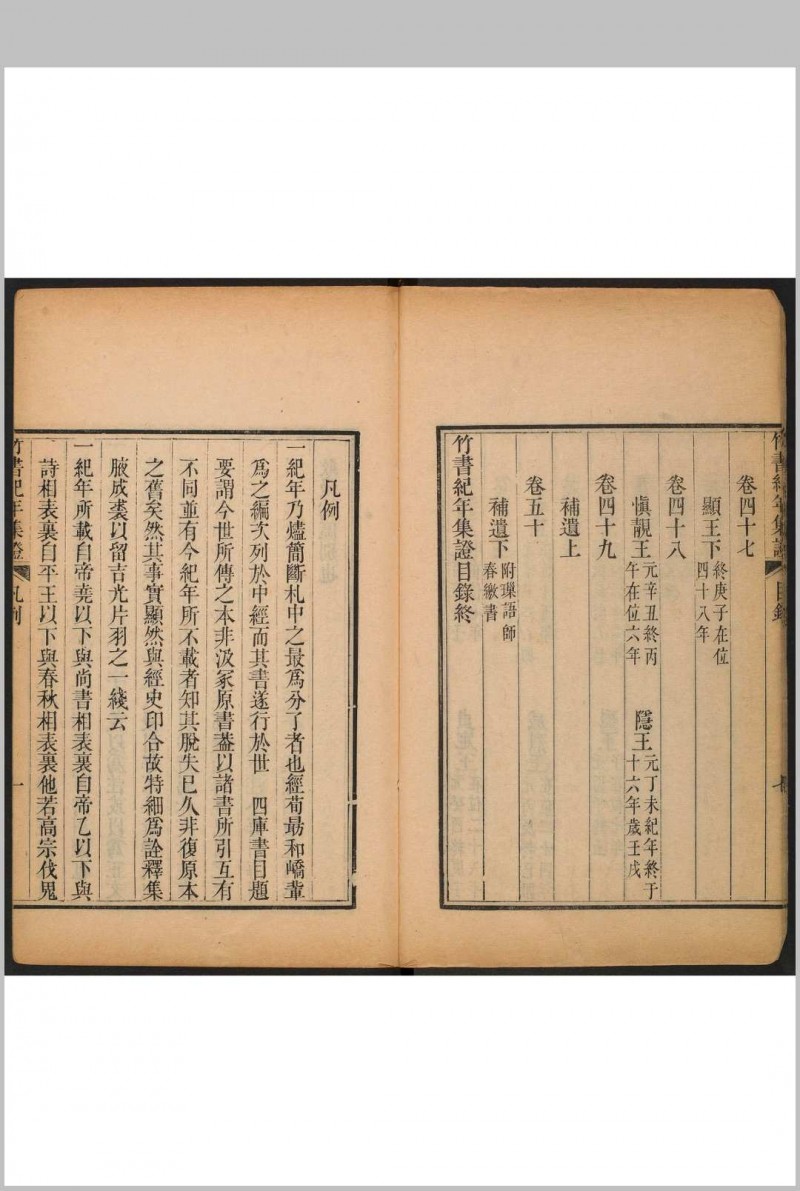 竹書紀年集證 目錄
卷四十七
顯王下 終庚子在位四十八年
卷四十八
慎靚王 元辛丑終丙午在位六年 隱王 元丁未紀年終于十六年歲壬戌
卷四十九
補遺上
卷五十
補遺下 附璅語師春繳書
竹書紀年集證目錄終
凡例
一紀年乃燼簡斷札中之最爲分了者也經荀勗和嶠輩
爲之編次列於中經而其書遂行於世 四庫書目題
要謂今世所傳之本非汲冢原書葢以諸書所引互有
不同並有今紀年所不載者知其脫失已久非復原本
之舊矣然其事實顯然與經史印合故特細爲詮釋集
腋成裘以留吉光片羽之一綫云
一紀年所載自帝堯以下與尚書相表裏自帝乙以下與
詩相表裏自平王以下與春秋相表裏他若高宗伐鬼
竹書紀年集證 凡例 一